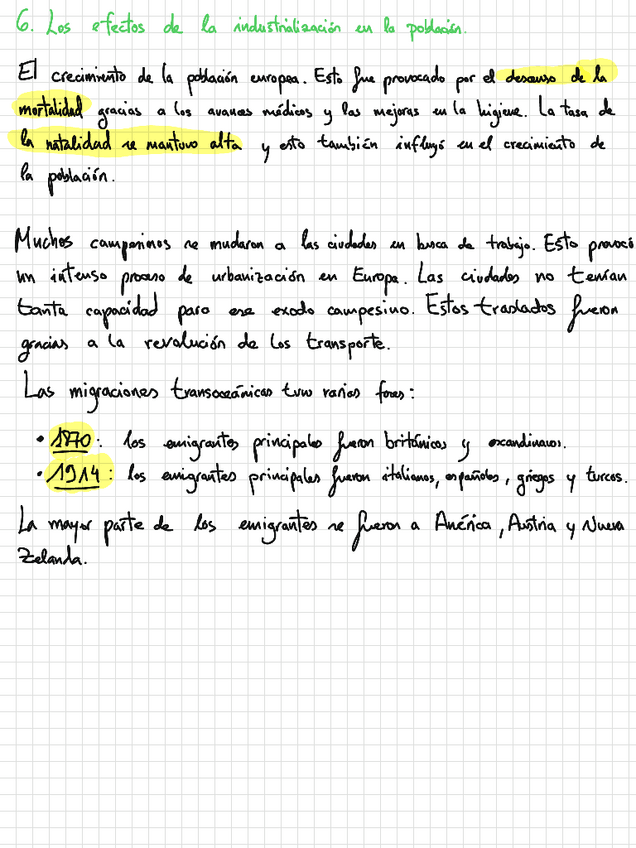 6. Los efectos de la industrialización en la población.
El crecimiento de la población europea. Esto fue provocado por el descenso de la
mortalidad gracias a los avances médicos y las mejoras en la higiene. La tasa de
la natalidad se mantuvo alta y esto también influyó en el crecimiento de
la población.
Muchos campesinos se mudaron a las ciudades en busca de trabajo. Esto provocó
un intenso proceso de urbanización en Europa. Las ciudades no tenían
tanta capacidad para ese exodo campesino. Estos traslados fueron
gracias a la revolución de los transporte.
Las migraciones transoceánicas tuvo varias fases:
• 1870: los emigrantes principales fueron británicos y escandinavos.
• 1914: los emigrantes principales fueron italianos, españoles, griegos y turcos.
La mayor parte de los emigrantes se fueron a América, Austria y Nueva
Zelanda.